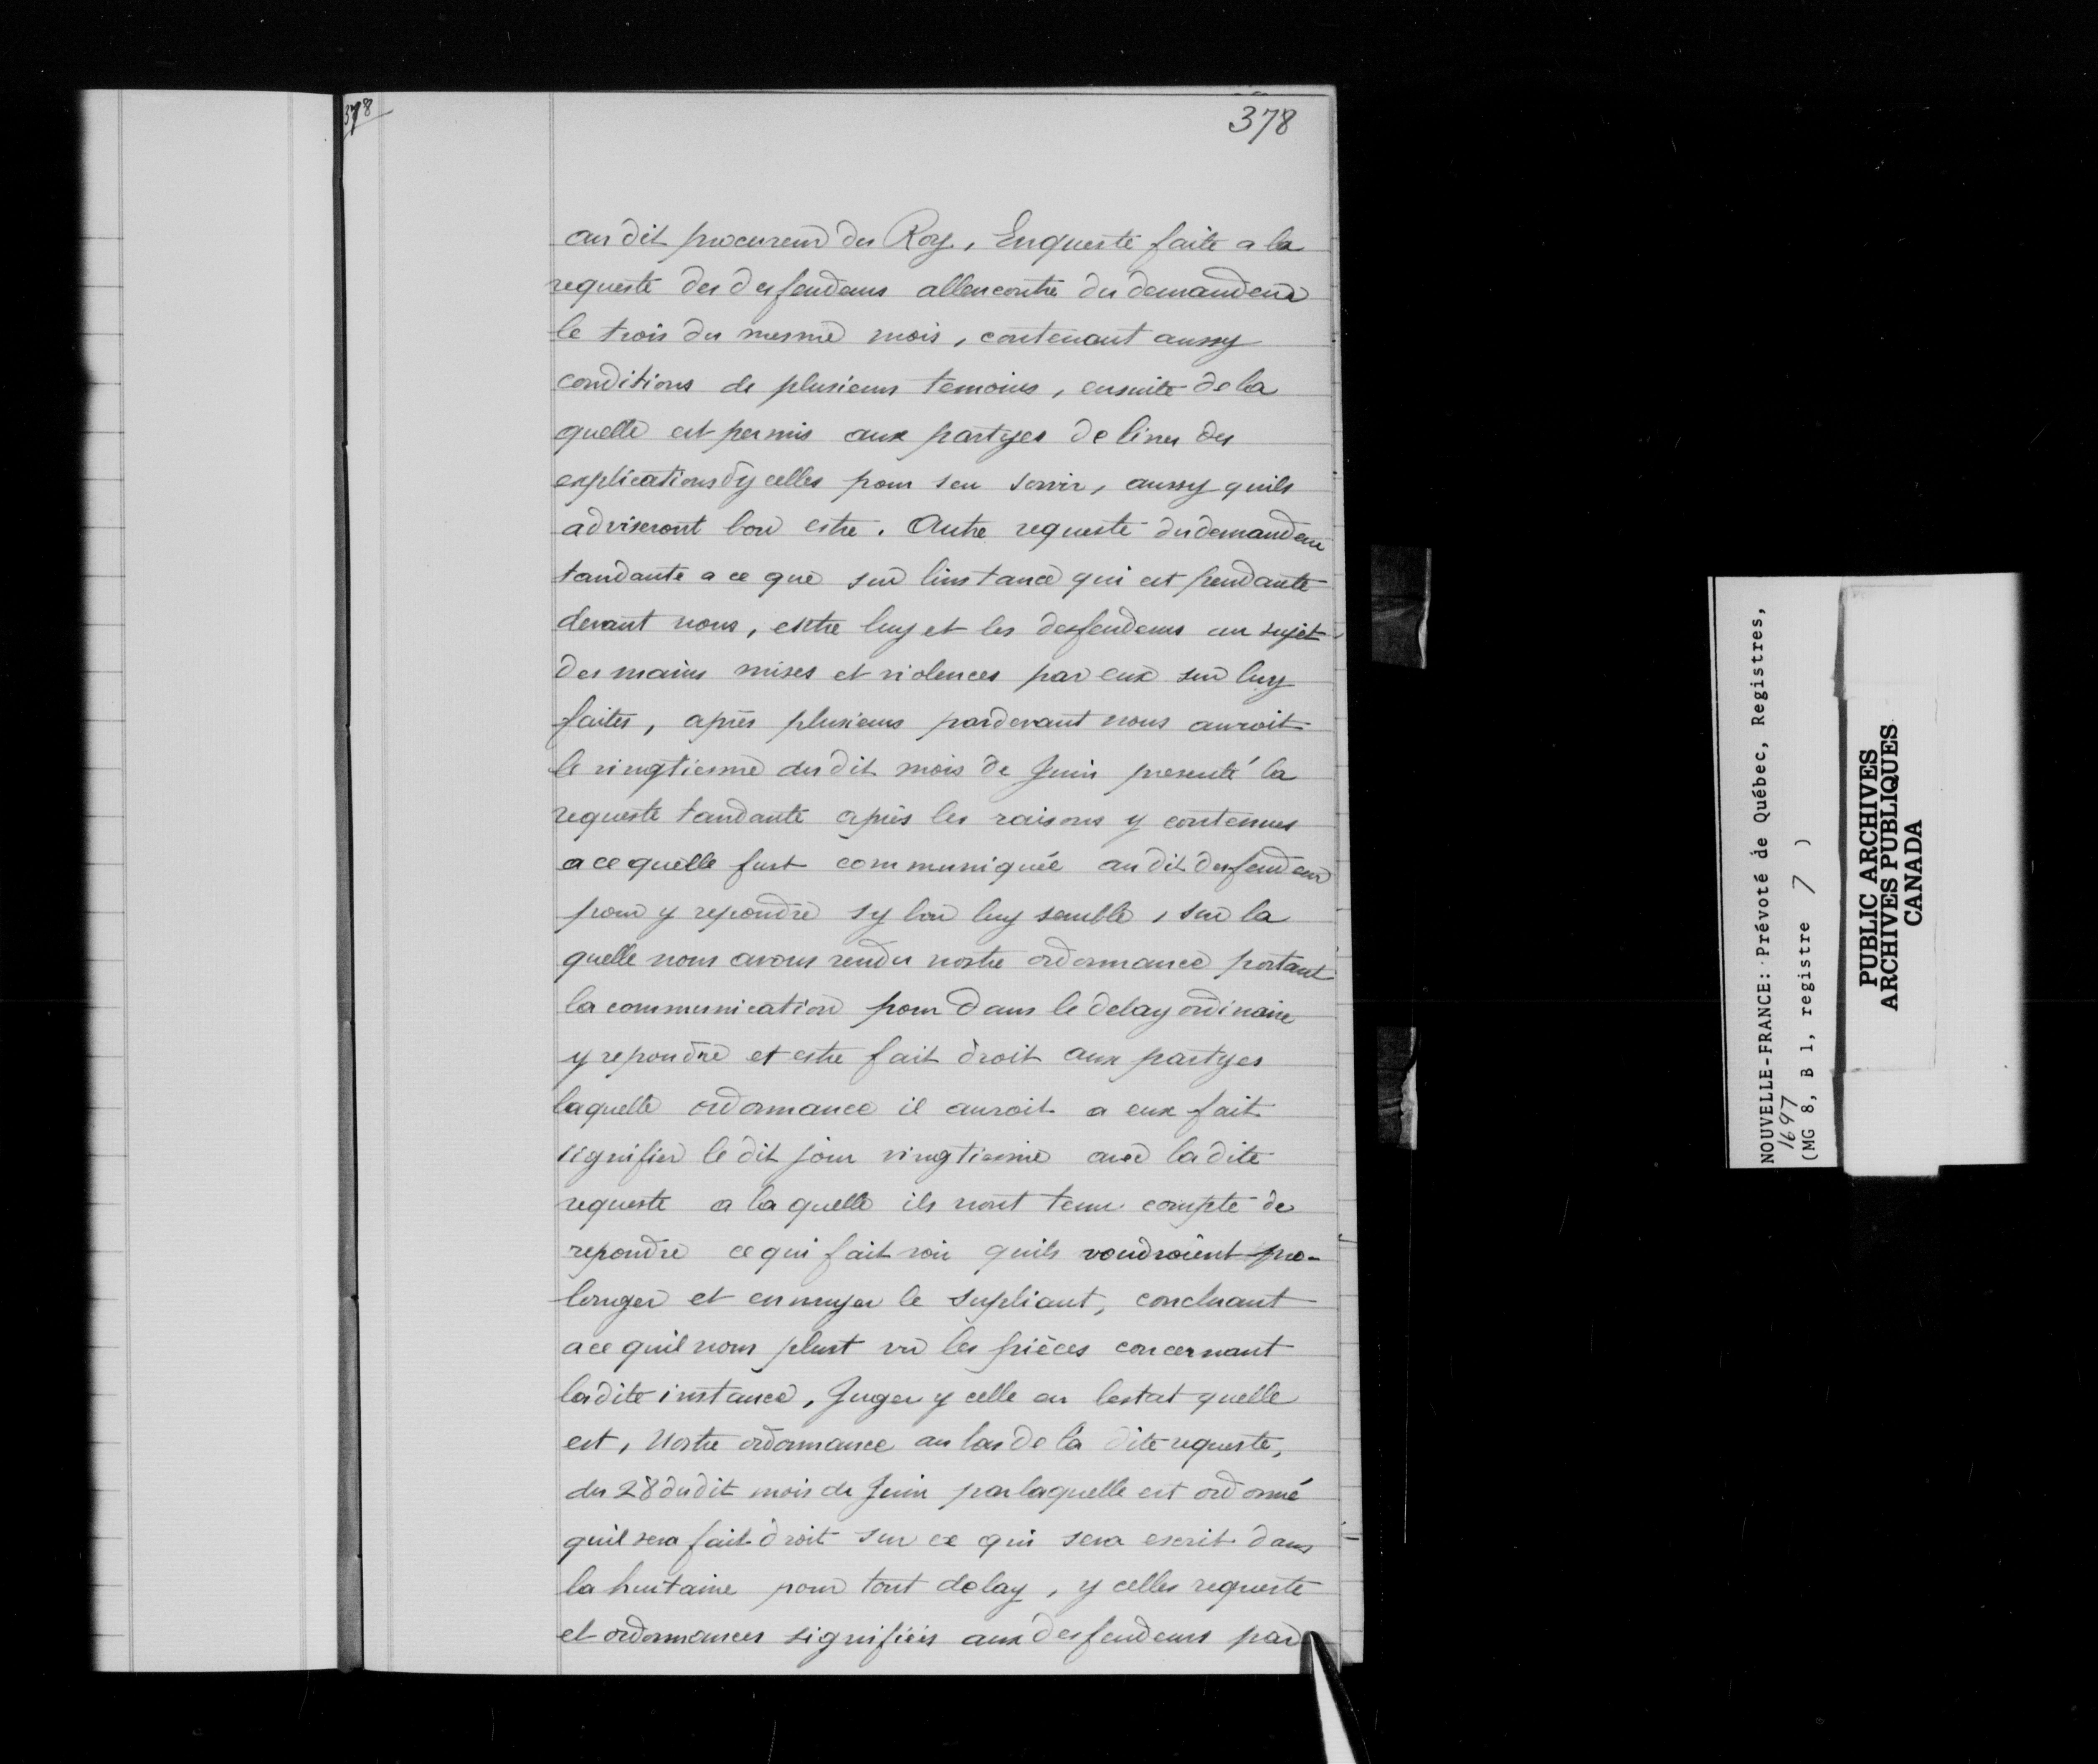 378
378
au dit procureur du Roy, Enqueste faite a la
requeste des desfendeurs allencontre du demandeur
le trois du mesme mois, contenant aussy
conditions de plusieurs temoins, ensuite de la
quelle est permis aux partyes de liner des
explications dycelles pour sen servir, aussy quils
adviseront bon estre. Autre requeste du demandeur
tandante a ce que sur linstance qui est pendante
devant nous, entre luy et les desfendeurs au sujet
des mains mises et violences par eux sur luy
faites, après plusieurs pardevant nous auroit
le vingtiesme du dit mois de Juin presenté la
requeste tandante après les raisons y contenues
a ce quelle fust communiquée au dit desfendeur
pour y repondre sy bon luy semble, sur la
quelle nous avons rendu nostre ordonnance portant
la communication pour dans le delay ordinaire
y repondre et estre fait droit aux partyes
laquelle ordonnance il auroit a eux fait
signifier le dit jour vingtiesme avec la dite
requeste a la quelle ils nont tenu compte de
repondre ce qui fait voir quils voudroient pro-
longer et ennuyer le supliant, concluant
a ce quil nous plust vu les pièces concernant
ladite instance, Juger ycelle en lestat quelle
est, Nostre ordonnance au bas de la dite requeste,
du 28 dudit mois de Juin par laquelle est ordonné
quil sera fait droit sur ce qui sera escrit dans
la huitaine pour tout delay, ycelles requeste
et ordonnances signifiées aux desfendeurs par
NOUVELLE-FRANCE: Prévoté de Québec, Registres,
1697
(MG 8, B 1, registre 7 )
PUBLIC ARCHIVES
ARCHIVES PUBLIQUES
CANADA